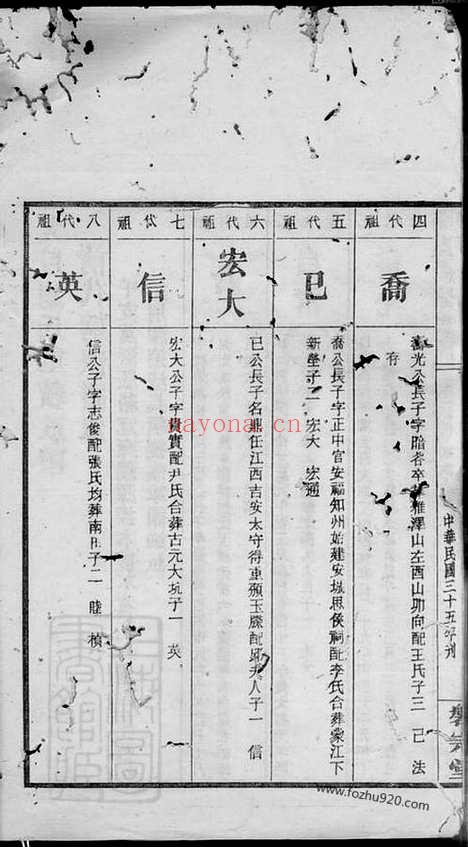 四代祖
喬
光公長子字暗者卒葬雅澤山左酉山卯向配王氏子三 己 法
有
五代祖
巳
喬公長子字正中官安福知州始建安城思侯祠配李氏合葬蒙江下
新塋子二 宏大 宏通
六代祖
宏大
巳公長子名鼎任江西吉安太守得重額玉牒配 夫人子一 信
七代祖
信
宏大公子字貴實配尹氏合葬古元大坑子一 英
八代祖
英
信公子字志俊配張氏均葬南 子二 睦 楨
中華民國三十五年刊
堂
nayona.cn
www.fozhu920.com